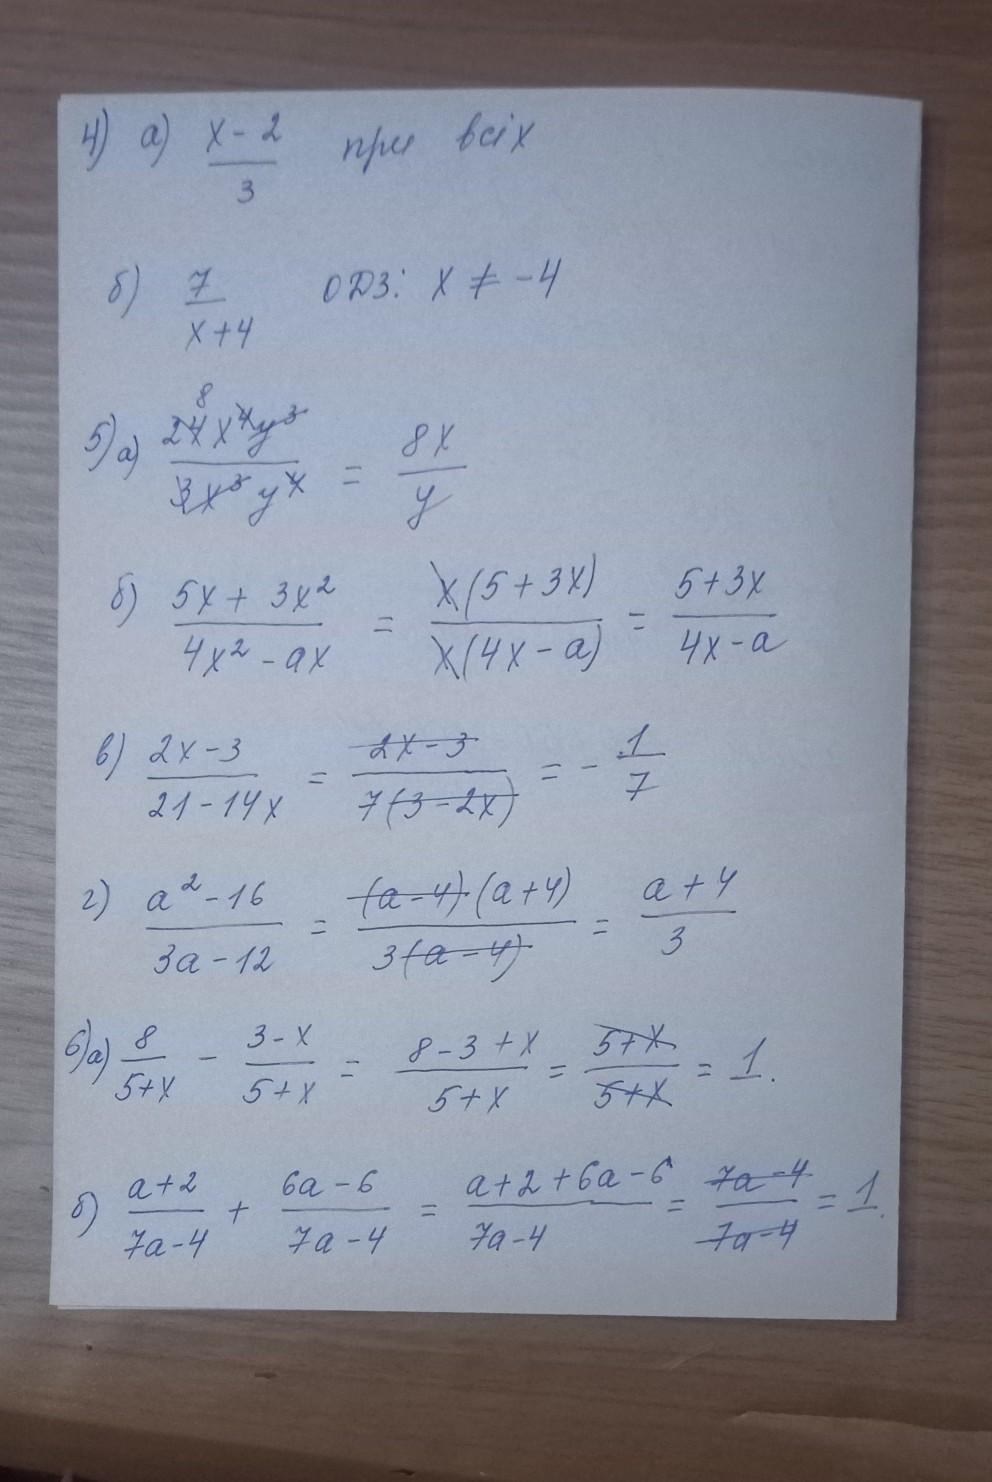 4) а) (x-2)/3 при всіх
б) 7/(x+4) ОДЗ: x ≠ -4
5) а) (24x⁴y³)/(3x³y⁴) = 8x/y
8
б) (5x + 3x²)/(4x² - ax) = x(5+3x)/x(4x-a) = (5+3x)/(4x-a)
в) (2x-3)/(21-14x) = (2x-3)/7(3-2x) = - 1/7
г) (a²-16)/(3a-12) = (a-4)(a+4)/3(a-4) = (a+4)/3
6) а) 8/(5+x) - (3-x)/(5+x) = (8-3+x)/(5+x) = (5+x)/(5+x) = 1.
б) (a+2)/(7a-4) + (6a-6)/(7a-4) = (a+2+6a-6)/(7a-4) = (7a-4)/(7a-4) = 1.